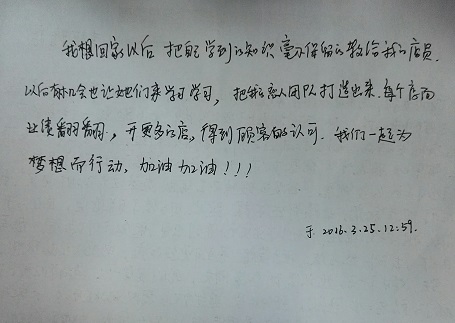 我想回家以后 把自己学到的知识毫不保留的教给我的店员.
以后有机会也让她们来学习学习, 把我的达人团队打造出来. 每个店面
业绩翻翻翻., 开更多的店, 得到顾客的认可. 我们一起为
梦想而行动, 加油 加油!!!
于 2016.3.25.12:59.